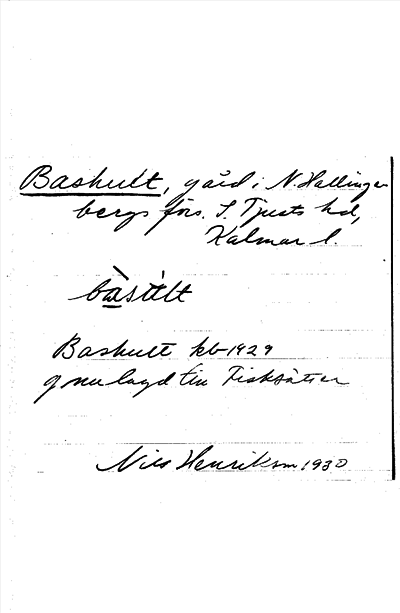 Bashult, gård i N. Hallinge-
bergs förs. S. Tjusts hd,
Kalmar l.
bàsúlt
Bashult kb 1929
nu lagd till
Nils Henrikson 1930